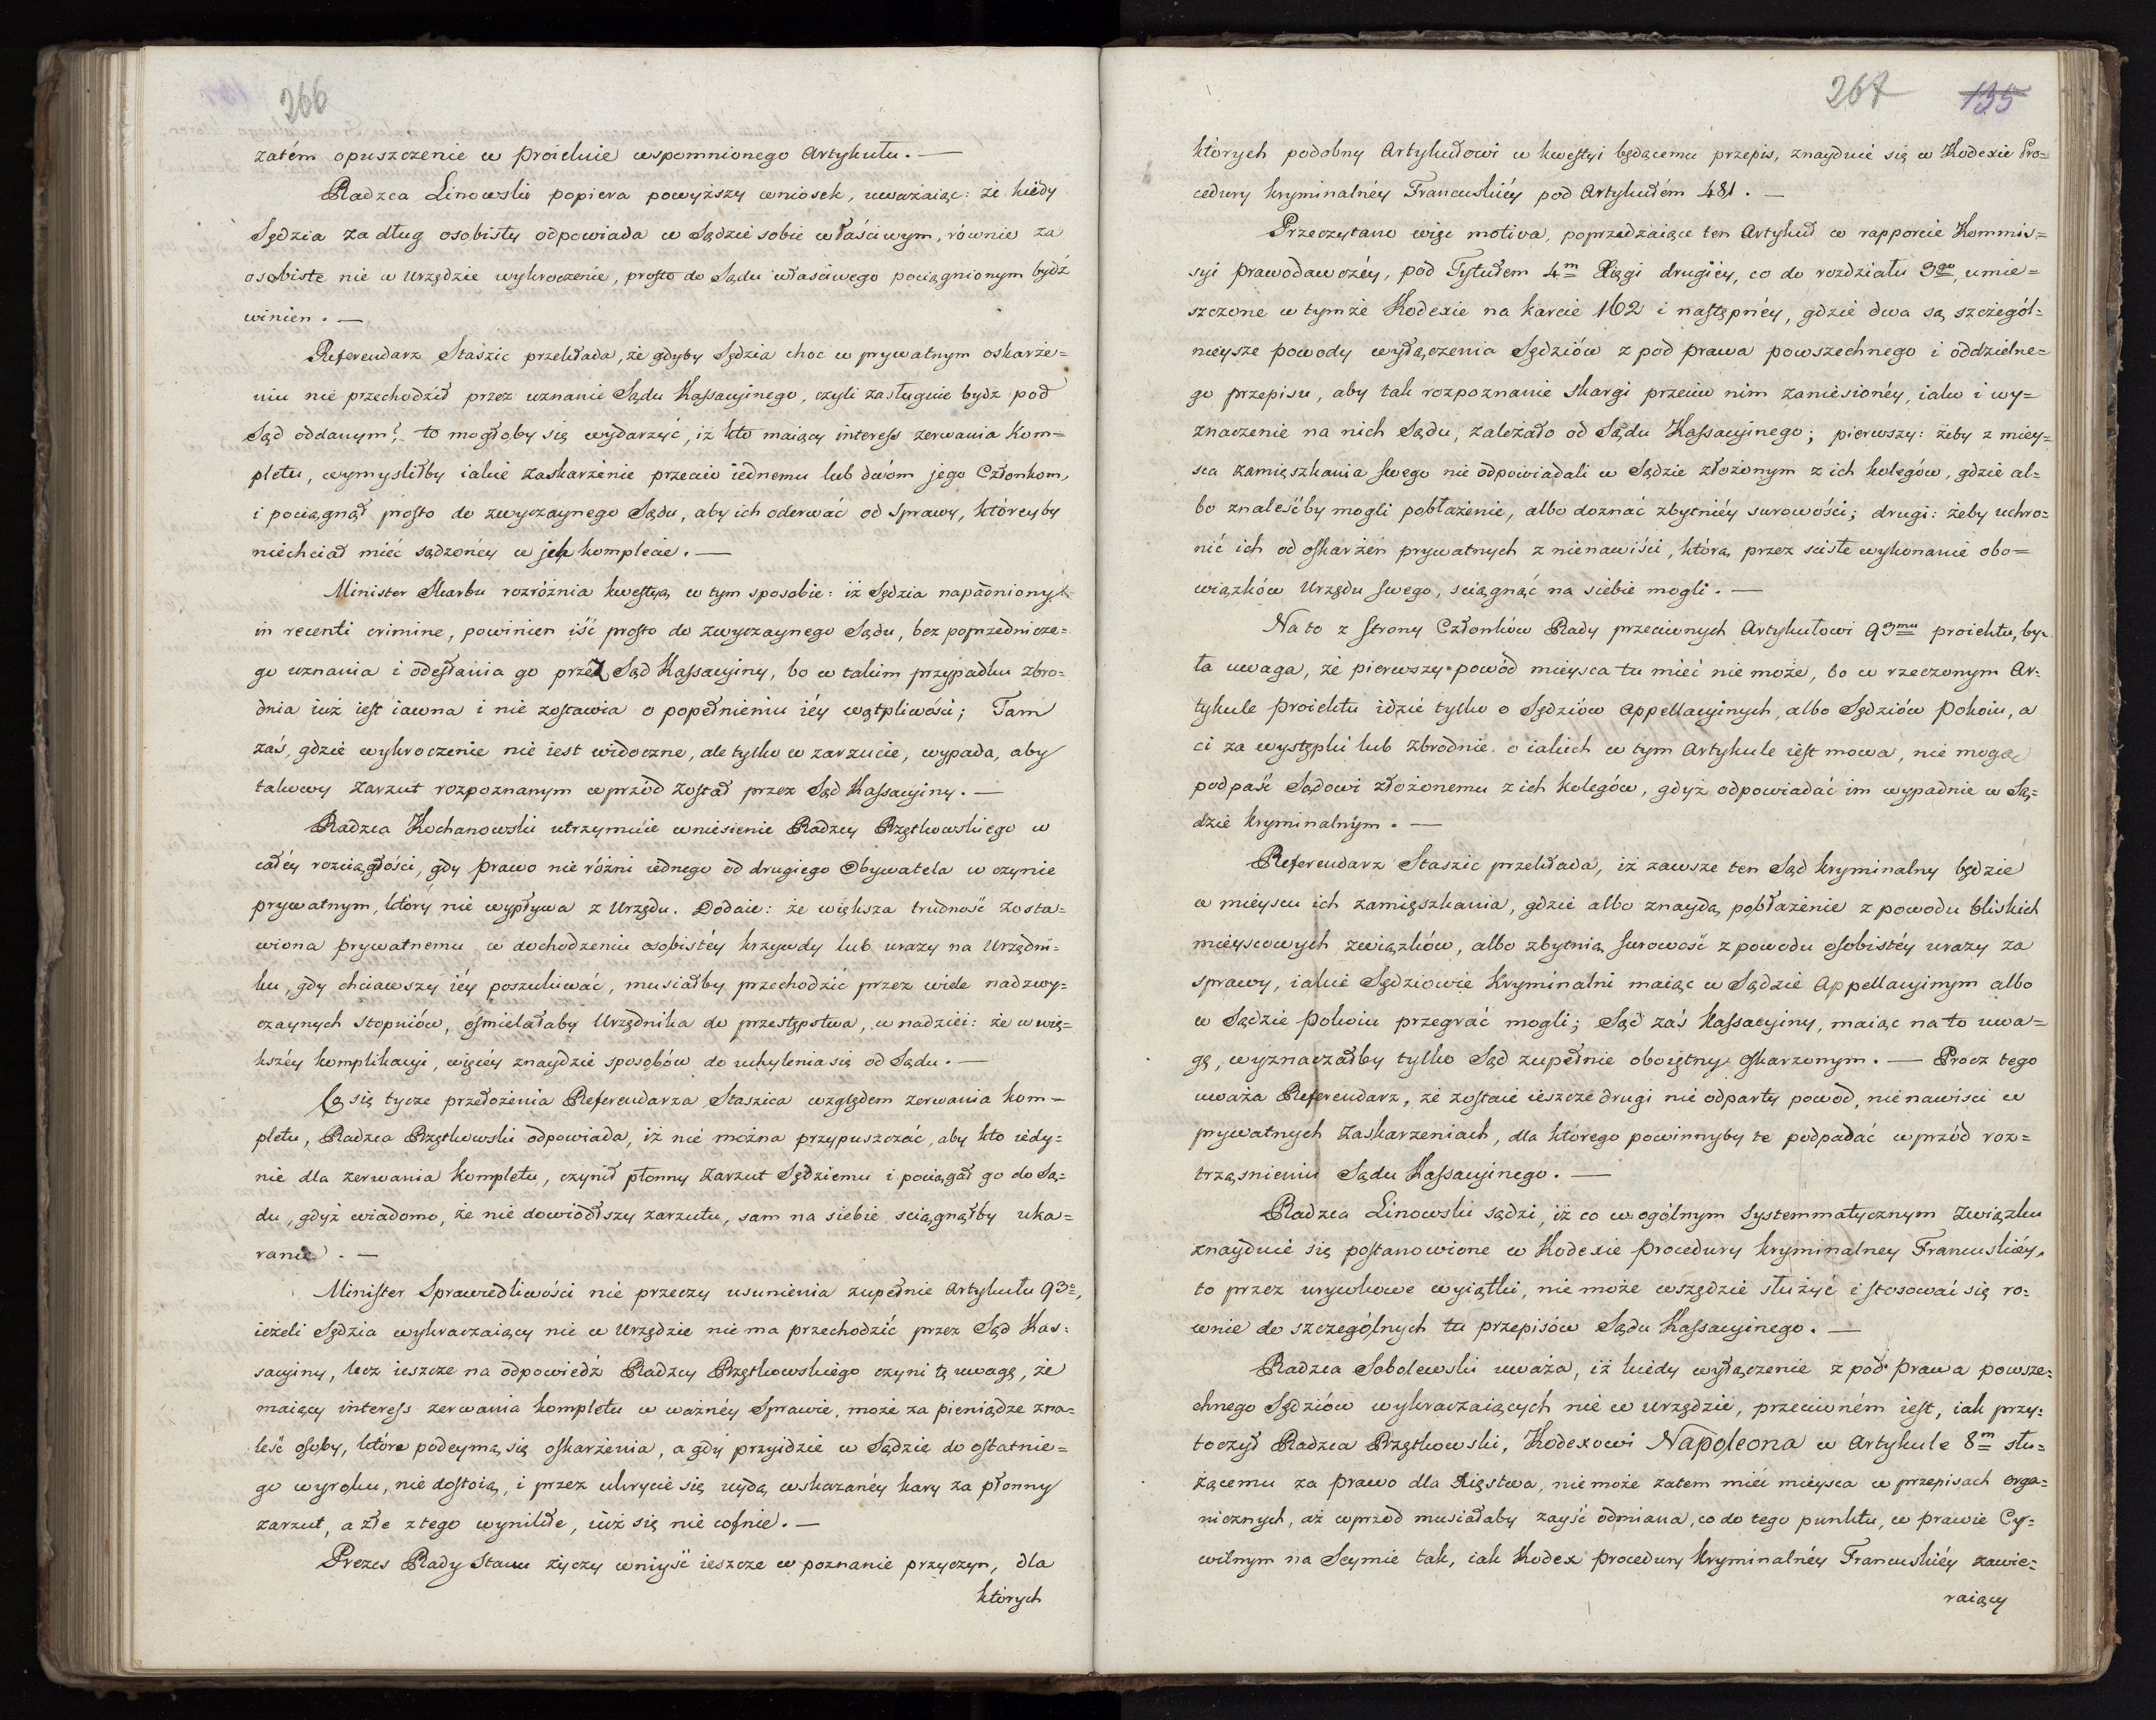 266
zatém opuszczenie w proiekcie wspomnionego Artykułu. —
Radzca Linowski popiera powyższy wniosek, uważaiąc: że kiédy
Sędzia za dług osobisty odpowiada w Sądzie sobie właściwym, równie za
osobiste nie w Urzędzie wykroczenie, prosto do Sądu właściwego pociągnionym bydź
winien. —
Referendarz Staszic przekłada, że gdyby Sędzia choc w prywatnym oskarże=
niu nie przechodził przez uznanie Sądu Kassacyinego, czyli zasługuie bydz pod
Sąd oddanym?, to mogłoby się wydarzyć, iż kto maiący interess zerwania kom=
pletu, wymysliłby iakie zaskarżenie przeciw iednemu lub dwóm jego Członkom,
i pociągnął prosto do zwyczaynego Sądu, aby ich oderwać od sprawy, któreyby
niechciał mieć sądzonéy w jch komplecie. —
Minister Skarbu rozróżnia kwestyą w tym sposobie: iż Sędzia napadniony
in recenti crimine, powinien iść prosto do zwyczaynego Sądu, bez poprzednicze=
go uznania i odesłania go przéz Sąd Kassacyiny, bo w takim przypadku zbro=
dnia iuż iest iawna i nie zostawia o popełnieniu iéy wątpliwości; Tam
zaś, gdzie wykroczenie nie iest widoczne, ale tylko w zarzucie, wypada, aby
takowy zarzut rozpoznanym wprzód został przez Sąd Kassacyiny. —
Radzca Kochanowski utrzymuie wniesienie Radzcy Rzętkowskiego w
całéy rozciągłości, gdy prawo nie różni iednego od drugiego Obywatela w czynie
prywatnym, który nie wypływa z Urzędu. Dodaie: że większa trudność zosta=
wiona prywatnemu w dochodzeniu osobistéy krzywdy lub urazy na Urzędni=
ku, gdy chciawszy iéy poszukiwać, musiałby przechodzić przez wiele nadzwy=
czaynych stopniów, ośmielałaby Urzędnika do przestępstwa, w nadziei: że w wię=
kszéy komplikacyi, więcéy znaydzie sposobów do uchylenia się od Sądu. —
Co się tycze przełożenia Referendarza Staszica względem zerwania kom=
pletu, Radzca Rzętkowski odpowiada, iż nie można przypuszczać, aby kto iedy=
nie dla zerwania kompletu, czynił płonny zarzut Sędziemu i pociągał go do Są=
du, gdyż wiadomo, że nie dowiódłszy zarzutu, sam na siebie sciągnąłby uka=
ranie. —
Minister Sprawiedliwości nie przeczy usunienia zupełnie Artykułu 93º,
ieżeli Sędzia wykraczaiący nie w Urzędzie nie ma przechodzić przez Sąd Kas=
sacyiny, lecz ieszcze na odpowiedź Radzcy Rzętkowskiego czyni tę uwagę, że
maiący interess zerwania kompletu w ważnéy Sprawie, może za pieniądze zna=
leść osoby, które podeymą się oskarżenia, a gdy przyidzie w Sądzie do ostatnie=
go wyroku, nie dostoią, i przez ukrycie się uydą wskazanéy kary za płonny
zarzut, a złe z tego wynikłe, iuż się nie cofnie. —
Prezes Rady Stanu życzy wniyść ieszcze w poznanie przyczyn, dla
których
267 135
których podobny Artykułowi w kwestyi będącemu przepis, znayduie się w Kodexie Pro=
cedury kryminalnéy Francuskiéy pod Artykułém 481. —
Przeczytano więc motiva, poprzedzaiące ten Artykuł w rapporcie Kommis=
syi prawodawczéy, pod Tytułem 4m Xięgi drugiéy, co do rozdziału 3go, umie=
szczone w tymże Kodexie na karcie 162 i następnéy, gdzie dwa są szczegól=
nieysze powody wyłączenia Sędziów z pod prawa powszechnego i oddzielne=
go przepisu, aby tak rozpoznanie skargi przeciw nim zaniesionéy, iako i wy=
znaczenie na nich Sądu, zależało od Sądu Kassacyinego; pierwszy: żeby z miey=
sca zamięszkania swego nie odpowiadali w Sądzie złożonym z ich kolegów, gdzie al=
bo znaleśćby mogli pobłażenie, albo doznać zbytniéy surowości; drugi: żeby uchro=
nić ich od oskarżeń prywatnych z nienawiści, którą przez sciste wykonanie obo=
wiązków Urzędu swego, sciągnąć na siebie mogli. —
Na to z strony Członków Rady przeciwnych Artykułowi 93mu proiektu, by=
ła uwaga, że pierwszy powód mieysca tu mieć nie może, bo w rzeczonym Ar=
tykule proiektu idzie tylko o Sędziów Appellacyinych, albo Sędziów Pokoiu, a
ci za występki lub zbrodnie o iakich w tym Artykule iest mowa, nie mogą
podpaść Sądowi złożonemu z ich kolegów, gdyż odpowiadać im wypadnie w Są=
dzie kryminalnym. —
Referendarz Staszic przekłada, iż zawsze ten Sąd kryminalny będzie
w mieyscu ich zamięszkania, gdzie albo znaydą pobłażenie z powodu bliskich
mieyscowych związków, albo zbytnią surowość z powodu osobistéy urazy za
sprawy, iakie Sędziowie Kryminalni maiąc w Sądzie Appellacyinym albo
w Sądzie Pokoiu przegrać mogli; Sąd zaś Kassacyiny, maiąc na to uwa=
gę, wyznaczałby tylko Sąd zupełnie oboiętny oskarzonym. — Procz tego
uważa Referendarz, że zostaie ieszcze drugi nie odparty powod, nienawisci w
prywatnych zaskarzeniach, dla którego powinnyby te podpadać wprzód roz=
trząsnieniu Sądu Kassacyinego. —
Radzca Linowski sądzi, iż co w ogólnym systemmatycznym związku
znayduie się postanowione w Kodexie procedury kryminalney Francuskiéy,
to przez urywkowe wyiątki, nie może wszędzie służyć i stosować się ro=
wnie do szczególnych tu przepisów Sądu Kassacyinego. —
Radzca Sobolewski uważa, iż kiedy wyłączenie z pod prawa powsze=
chnego Sędziów wykraczaiących nie w urzędzie, przeciwném iest, iak przy=
toczył Radzca Rzętkowski, Kodexowi Napoleona w Artykule 8m słu=
żącemu za prawo dla Xięstwa, nie może zatem mieć mieysca w przepisach orga=
nicznych, aż wprzod musiałaby zayść odmiana, co do tego punktu, w prawie Cy=
wilnym na Seymie tak, iak Kodex procedury kryminalnéy Francuskiéy zawie=
raiący